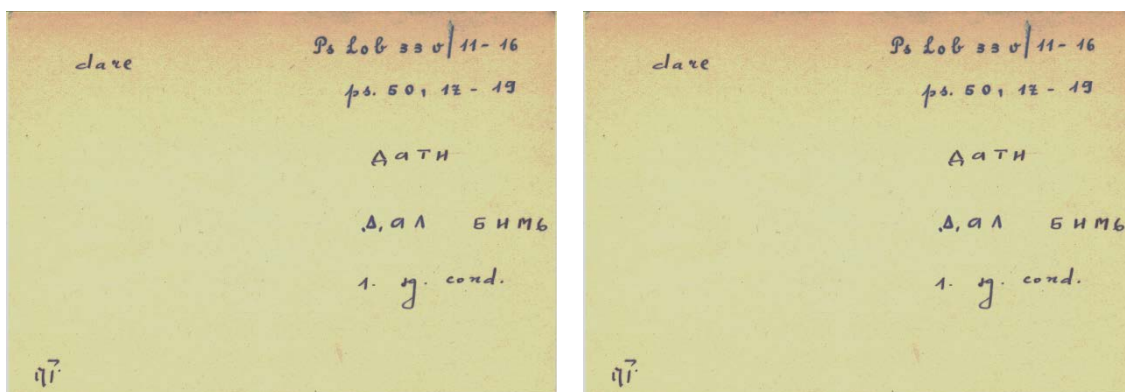 dare
Ps Lob 33 v/11-16
ps. 50, 17 - 19
дати
дал бимь
1. sg. cond.
dare
Ps Lob 33 v/11-16
ps. 50, 17 - 19
дати
дал бимь
1. sg. cond.